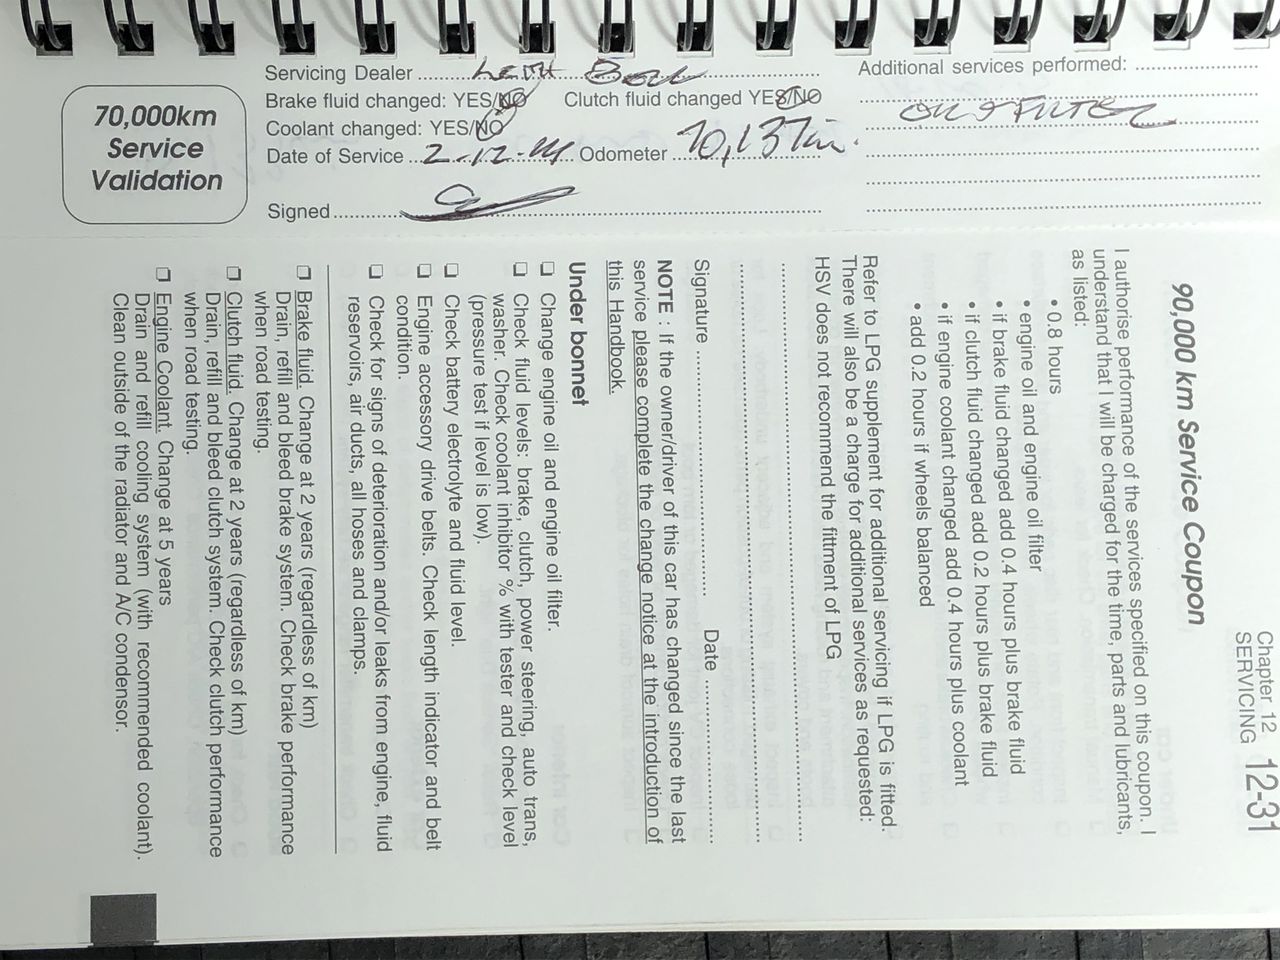 70,000km
Service
Validation
Servicing Dealer
Brake fluid changed: YES/NO Clutch fluid changed YES/NO
Coolant changed: YES/NO
Date of Service 2-12-14 Odometer 70,137km.
Signed
Additional services performed:
OIL & FILTER
Chapter 12
SERVICING 12-31
90,000 km Service Coupon
I authorise performance of the services specified on this coupon. I
understand that I will be charged for the time, parts and lubricants,
as listed:
• 0.8 hours
• engine oil and engine oil filter
• if brake fluid changed add 0.4 hours plus brake fluid
• if clutch fluid changed add 0.2 hours plus brake fluid
• if engine coolant changed add 0.4 hours plus coolant
• add 0.2 hours if wheels balanced
Refer to LPG supplement for additional servicing if LPG is fitted.
There will also be a charge for additional services as requested:
HSV does not recommend the fittment of LPG
Signature Date
NOTE : If the owner/driver of this car has changed since the last
service please complete the change notice at the introduction of
this Handbook.
Under bonnet
❑ Change engine oil and engine oil filter.
❑ Check fluid levels: brake, clutch, power steering, auto trans,
washer. Check coolant inhibitor % with tester and check level
(pressure test if level is low).
❑ Check battery electrolyte and fluid level.
❑ Engine accessory drive belts. Check length indicator and belt
condition.
❑ Check for signs of deterioration and/or leaks from engine, fluid
reservoirs, air ducts, all hoses and clamps.
❑ Brake fluid. Change at 2 years (regardless of km)
Drain, refill and bleed brake system. Check brake performance
when road testing.
❑ Clutch fluid. Change at 2 years (regardless of km)
Drain, refill and bleed clutch system. Check clutch performance
when road testing.
❑ Engine Coolant. Change at 5 years
Drain and refill cooling system (with recommended coolant).
Clean outside of the radiator and A/C condensor.